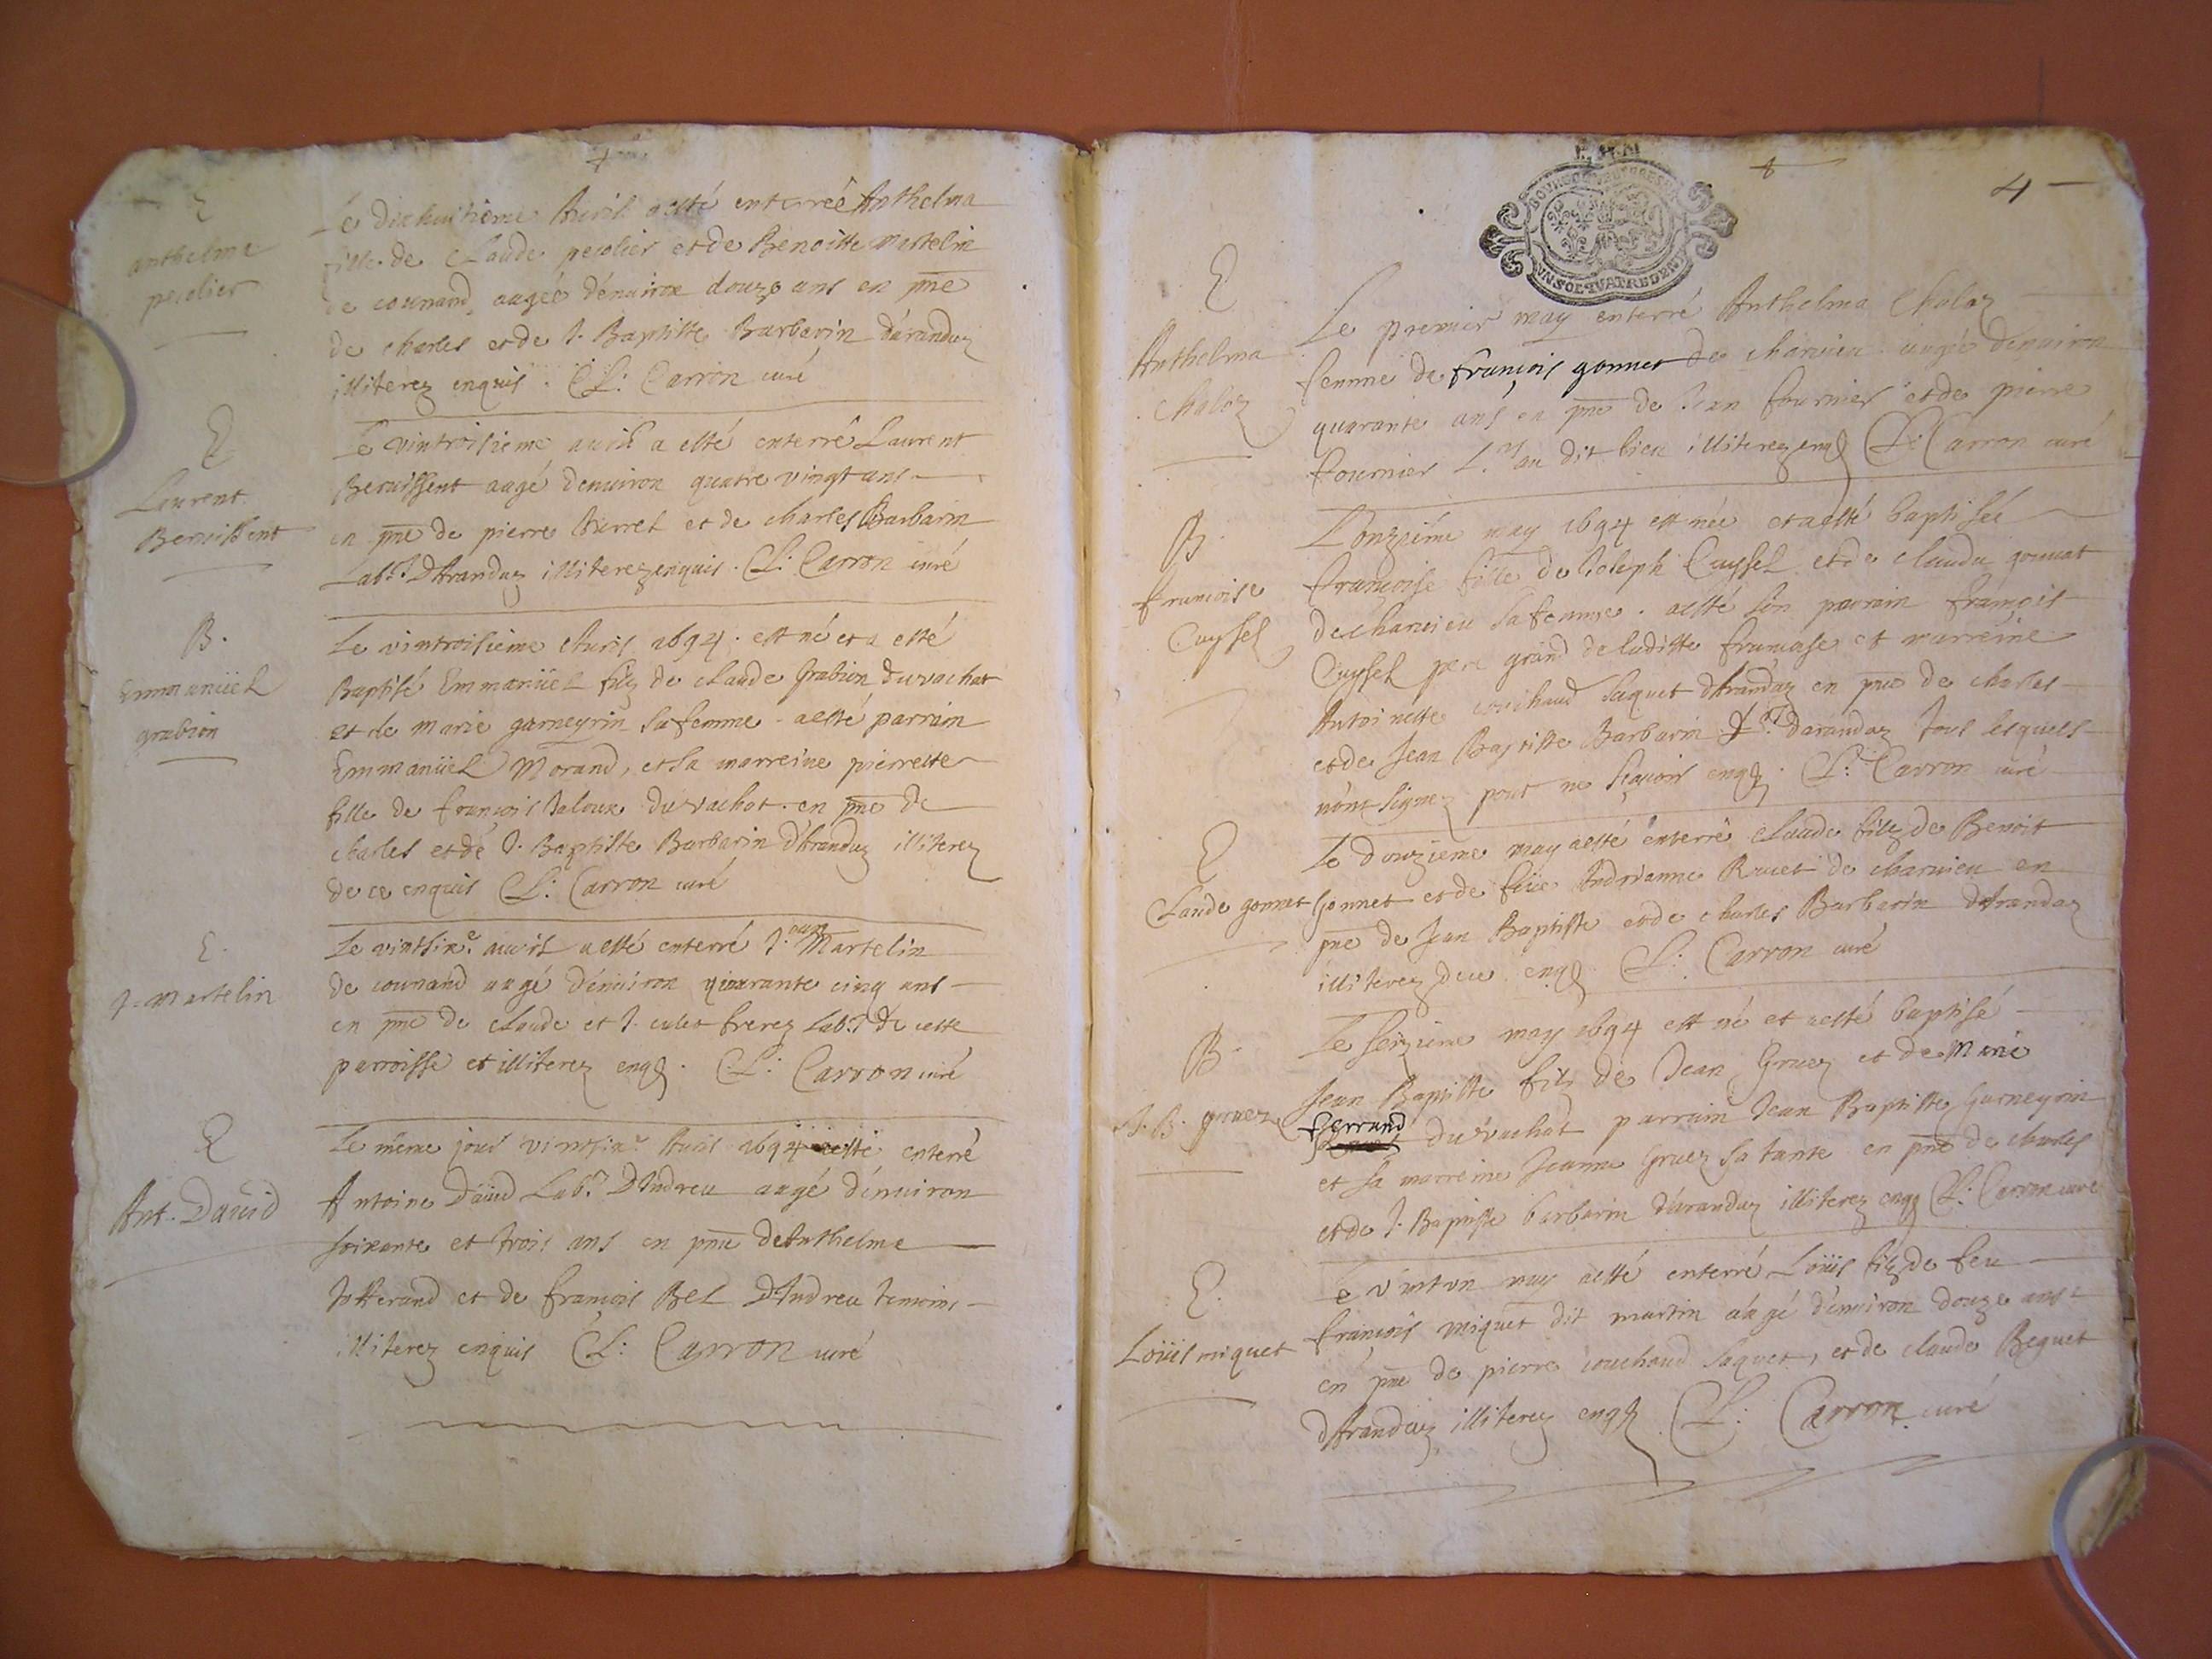 E
anthelme
pecolier
Le dixhuitieme Avril a esté enterrée Anthelma
fille de Claude pecolier et de Benoitte Martelin
de counand, aagée d'environ douze ans en pnce
de charles et de J. Baptiste Barbarin d'arandaz
illiterez enquis. Cl: Carron curé
E
Laurent
Benissent
Le vintroisieme avril a esté enterré Laurent
Benissent aagé denuiron quatre vingt ans
en pnce de pierre et de charles Barbarin
Lab.rs D'Arandaz illiterez enquis. Cl: Carron curé
B.
Emmanüel
grabion
Le vintroisieme Avris 1694. est né et a esté
Baptisé Emmanüel filz de claude Grabion du vachat
et de marie garneyrin sa femme. a esté parrain
Emmanüel Morand, et sa marreine pierrette
fille de françois Jaloux du vachat. en pnce de
charles et de J. Baptiste Barbarin d'Arandaz illiterez
de ce enquis Cl: Carron curé
E.
J. Martelin
Le vintsix.e avvril a esté enterré J.ean Martelin
de counand aagé d'énuiron quarante cinq ans
en pnce de claude et J. culet frerez Lab.rs de cette
perroisse et illiterez enqs. Cl: Carron curé
E
Ant. David
Le méme jour vintsix.e Avril 1694 a esté enterré
Antoine Dauid Lab.r D'Indreu aagé d'énuiron
soixante et trois ans en pnce de Anthelme
Jotterand et de françois Bel D'Indreu temoins
illiterez enquis Cl: Carron curé
4
E
Anthelma
Chaloz
Le premier may enterré Anthelma Chaloz
femme de françois gonnet de charuieu aagée denuiron
quarante ans en pnce de Jean fournier et de pierre
fournier L.rs au dit lieu illiterez enqs Cl: Carron curé
B.
francoise
Cuyssel
L'onzième may 1694 est née et a esté baptisée
françoise fille de Joseph Cuyssel et de claudu gonnat
de charuieu sa femme. a esté son parrain françois
Cuyssel pere grand de laditte francoise et marreine
Antoinette couchaud Jaquet d'Arandaz en pnce de charles
et de Jean Baptiste Barbarin L.rs darandaz tous lesquels
n'ont signez pour ne sçauoir enqs. Cl: Carron curé
E
Claude gonnet
Le douzieme may a esté enterré claude filz de Benoit
Gonnet et de feüe Andrianne Rucet de charuieu en
pnce de Jean Baptiste et de charles Barbarin d'Arandaz
illiterez de ce enqs Cl: Carron curé
B.
J. B. gruez
Le seizieme may 1694 est né et a esté baptisé
Jean Baptiste filz de Jean Gruez et de Marie
ferrand du vachat parrain Jean Baptiste Garneyrin
et sa marreine Jeanne Gruez sa tante en pnce de charles
et de J. Baptiste barbarin d'arandaz illiterez enqs Cl: Carron curé
E.
Loüis miquet
Le vint un may a esté enterré Loüis filz de feu
françois miquet dit martin aagé d'énuiron douze ans
en pnce de pierre couchaud Jaquet, et de claude Beguet
D'Arandaz illiterez enqs Cl: Carron curé